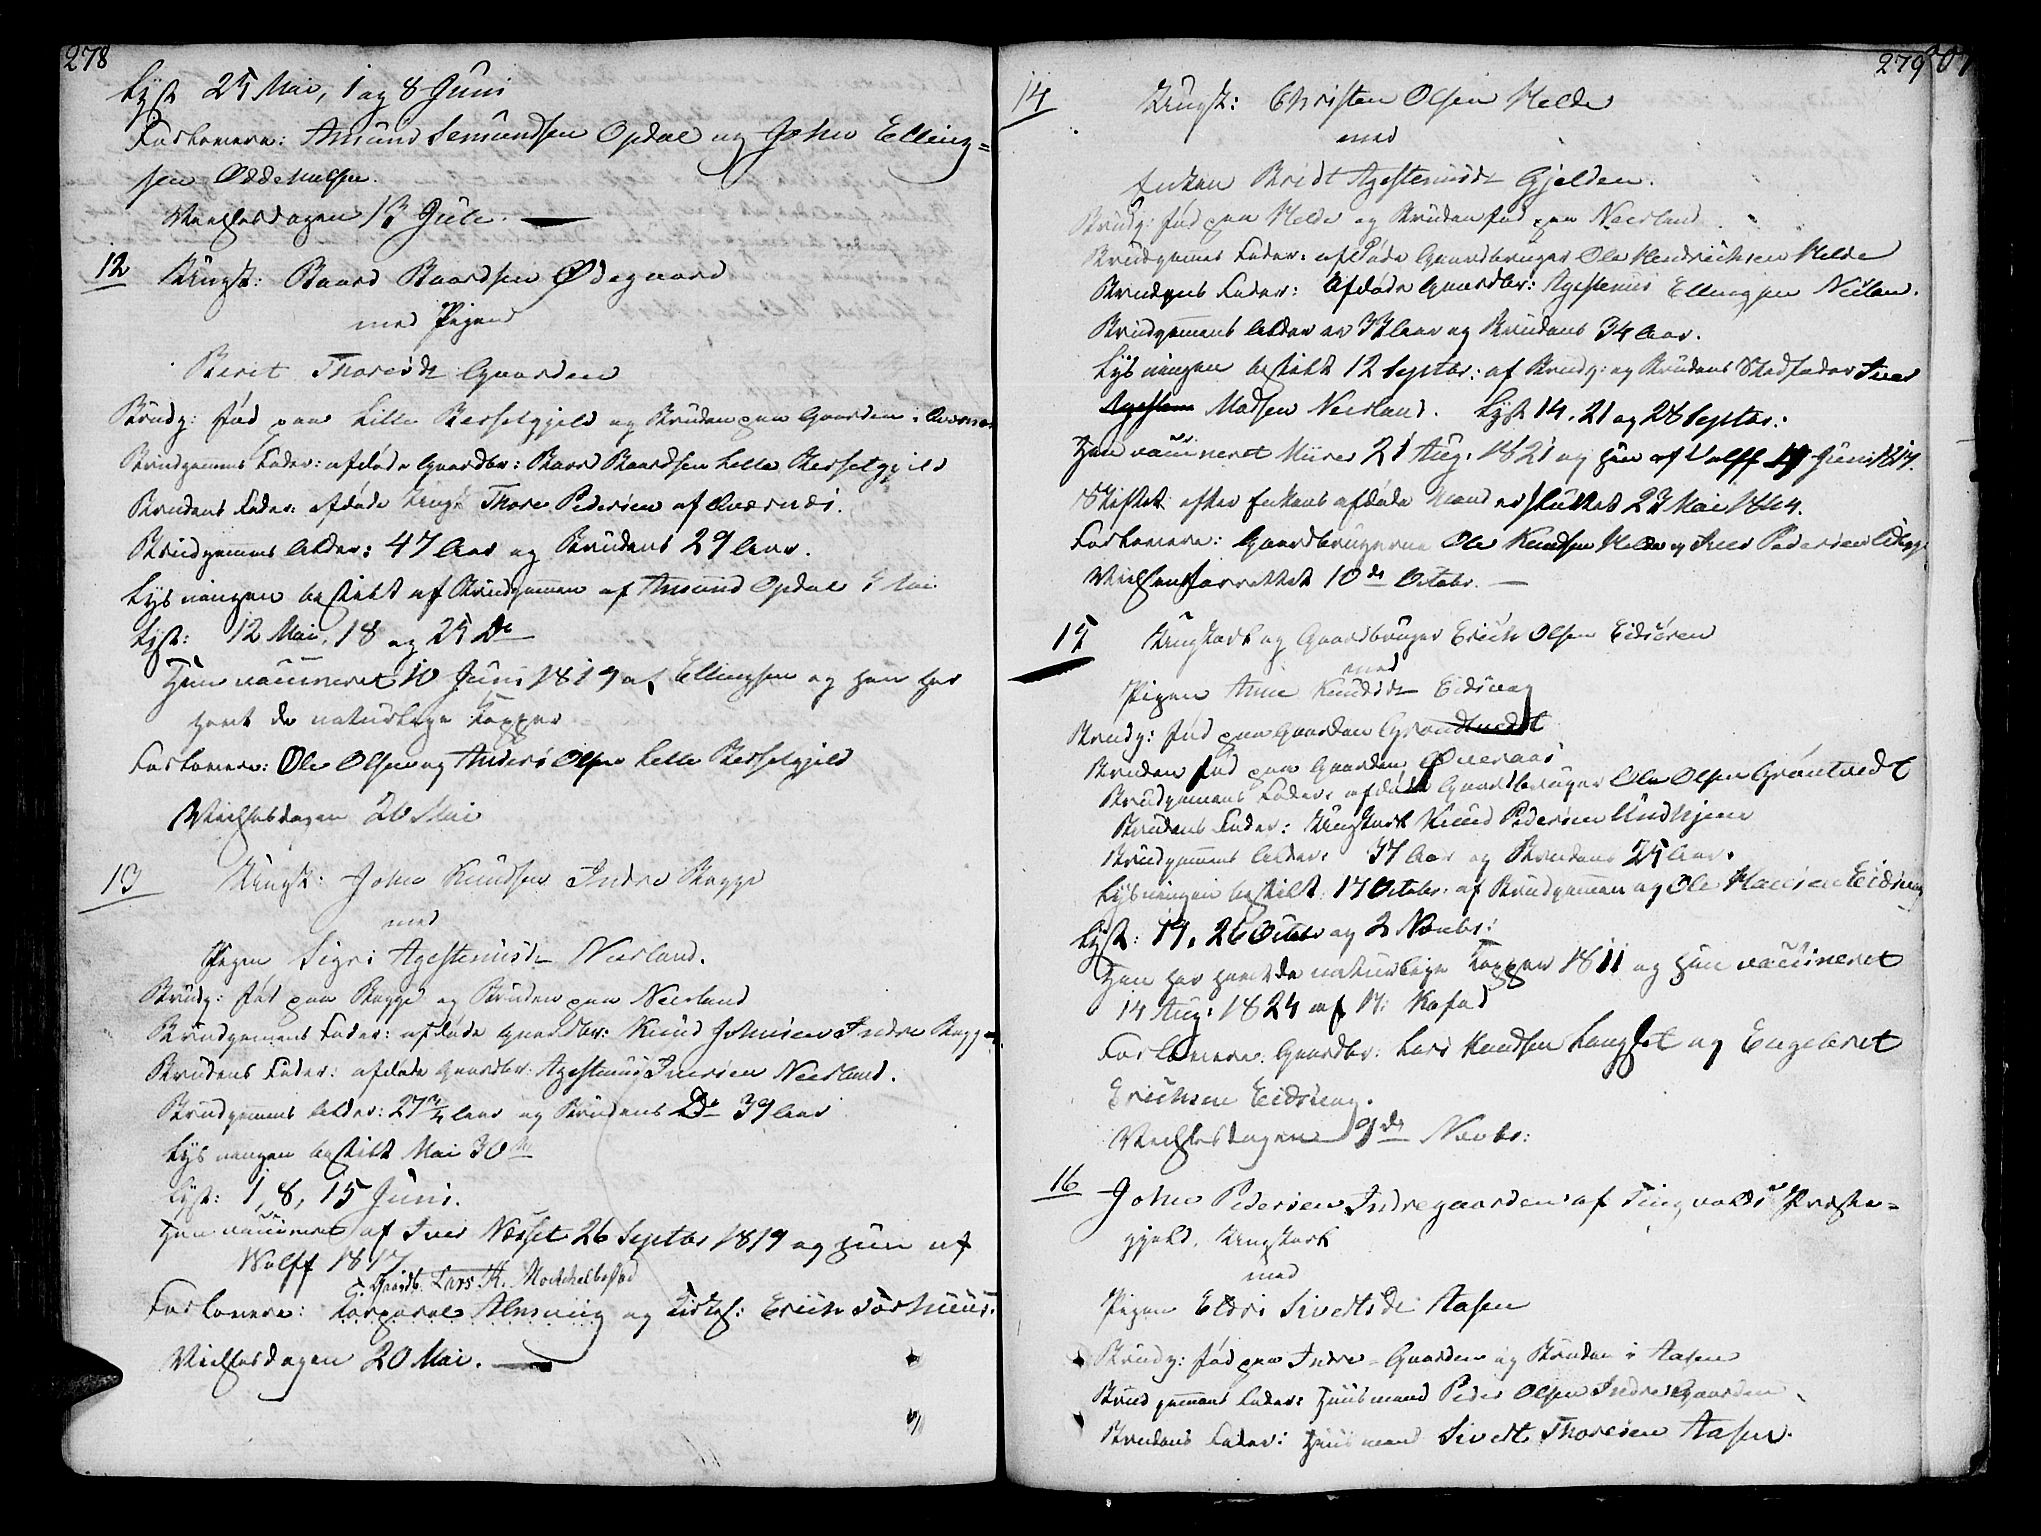 278
Lyst 25 Mai, 1 og 8 Juni
Forlovere: Amund Semundsen Opdal og John Elling=
sen Oddehulsen.
Vielsesdagen 13 Jule.
12 Ungk: Baard Baardsen Ødegaard
med Pigen
Berit Thoresdr Gaarden
Brudg: fød paa Lille Bersetgjeld og Bruden paa Gaarden i Qværnæs
Brudgomens Fader: afdøde Gaardbr: Baar Baardsen Lille Bersetgjeld
Brudens Fader: afdøde Ungk Thore Pedersen af Qværnæs.
Brudgomens Alder: 47 Aar og Brudens 29 Aar.
Lysningen bestilt af Brudgommen af Amund Opdal Mai
Lyst: 12 Mai, 18 og 25 Do
Hun vaccineret 10 Juni 1819 af Ellingsen og han har
havt de naturlige Kopper
Forlovere: Ole Olsen og Anders Olsen Lille Bersetgjeld
Vielsesdagen 20 Mai
13 Ungk: John Knudsen Indre Bogge
med
Pigen Sigri Agestensdr Neerland.
Brudg: fød paa Bogge og Bruden paa Neerland
Brudgomens Fader: afdøde Gaardbr: Knud Johnsen Indre Bogge.
Brudens Fader: afdøde Gaardbr: Agesten Iversen Neerland.
Brudgomens Alder: 27 3/4 Aar og Brudens Do 39 Aar
Lysningen bestilt Mai 30te
Lyst: 1, 8, 15 Juni.
Han vaccineret af Iver Næsset 26 Septbr 1819 og hun af
Wolff 1817
Gaardb. Lars K. Mochelbostad
Forlovere: Korporal Almning og Kirks: Erich Torhuus.
Vielsesdagen 20 Mai.
279
14 Ungk: Christen Olsen Helde
med
Enken Bridt Agestensdr Gjelden.
Brudg: fød paa Helde og Bruden fød paa Neerland
Brudgomens Fader: afdøde Gaardbruger Ole Hendrichsen Helde
Brudens Fader: Afdøde Gaardbr: Agesten Ellingsen Neelan.
Brudgomens Alder er 33 Aar og Brudens 34 Aar.
Lysningen bestilt 12 Septbr: af Brudg: og Brudens Stedfader Iver
Agesten Madsen Neerland. Lyst 14. 21 og 28 Septbr:
Han vaccineret 21 Aug. 1821 og hun af Wolff Juni 1817.
Skiftet efter Enkens afdøde Mand er sluttet 23 Mai 1844.
Forlovere: Gaardbrugerne Ole Knudsen Helde og Iver Pedersen
Vielsen forrettet 10de Octobr.
15 Ungkarl og Gaardbruger Erich Olsen Eidsøren
med
Pigen Anne Knudsdr Eidsvag
Brudg: fød paa Gaarden Grøndtvedt
Bruden fød paa Gaarden Øveraas
Brudgomens Fader: afdøde Gaardbruger Ole Olsen Grøntvedt
Brudens Fader: Ungkarl Knud Pedersen Undhjem
Brudgomens Alder: 37 Aar og Brudens 25 Aar.
Lysningen bestilt 17 Octobr: af Brudgommen og Ole Hansen Eidsvag
Lyst: 19. 26 Octobr og 2 Novbr:
Han har havt de naturlige Kopper 1811 og hun vaccineret
14 Aug: 1824 af N: Kafod
Forlovere: Gaardbr: Lars Knudsen Langset og Engebret
Erichsen Eidsvag.
Vielsesdagen 9de Novbr:
16 John Pedersen Indregaarden af Tingvolds Præste=
gjeld, Ungkarl
med
Pigen Eldri Sivertsdr Aasen
Brudg: fød paa Indre-Gaarden og Bruden i Aasen
Brudgomens Fader: Huusmand Peder Olsen Indre Gaarden
Brudens Fader: Huusmand Sivert Thoresen Aasen.